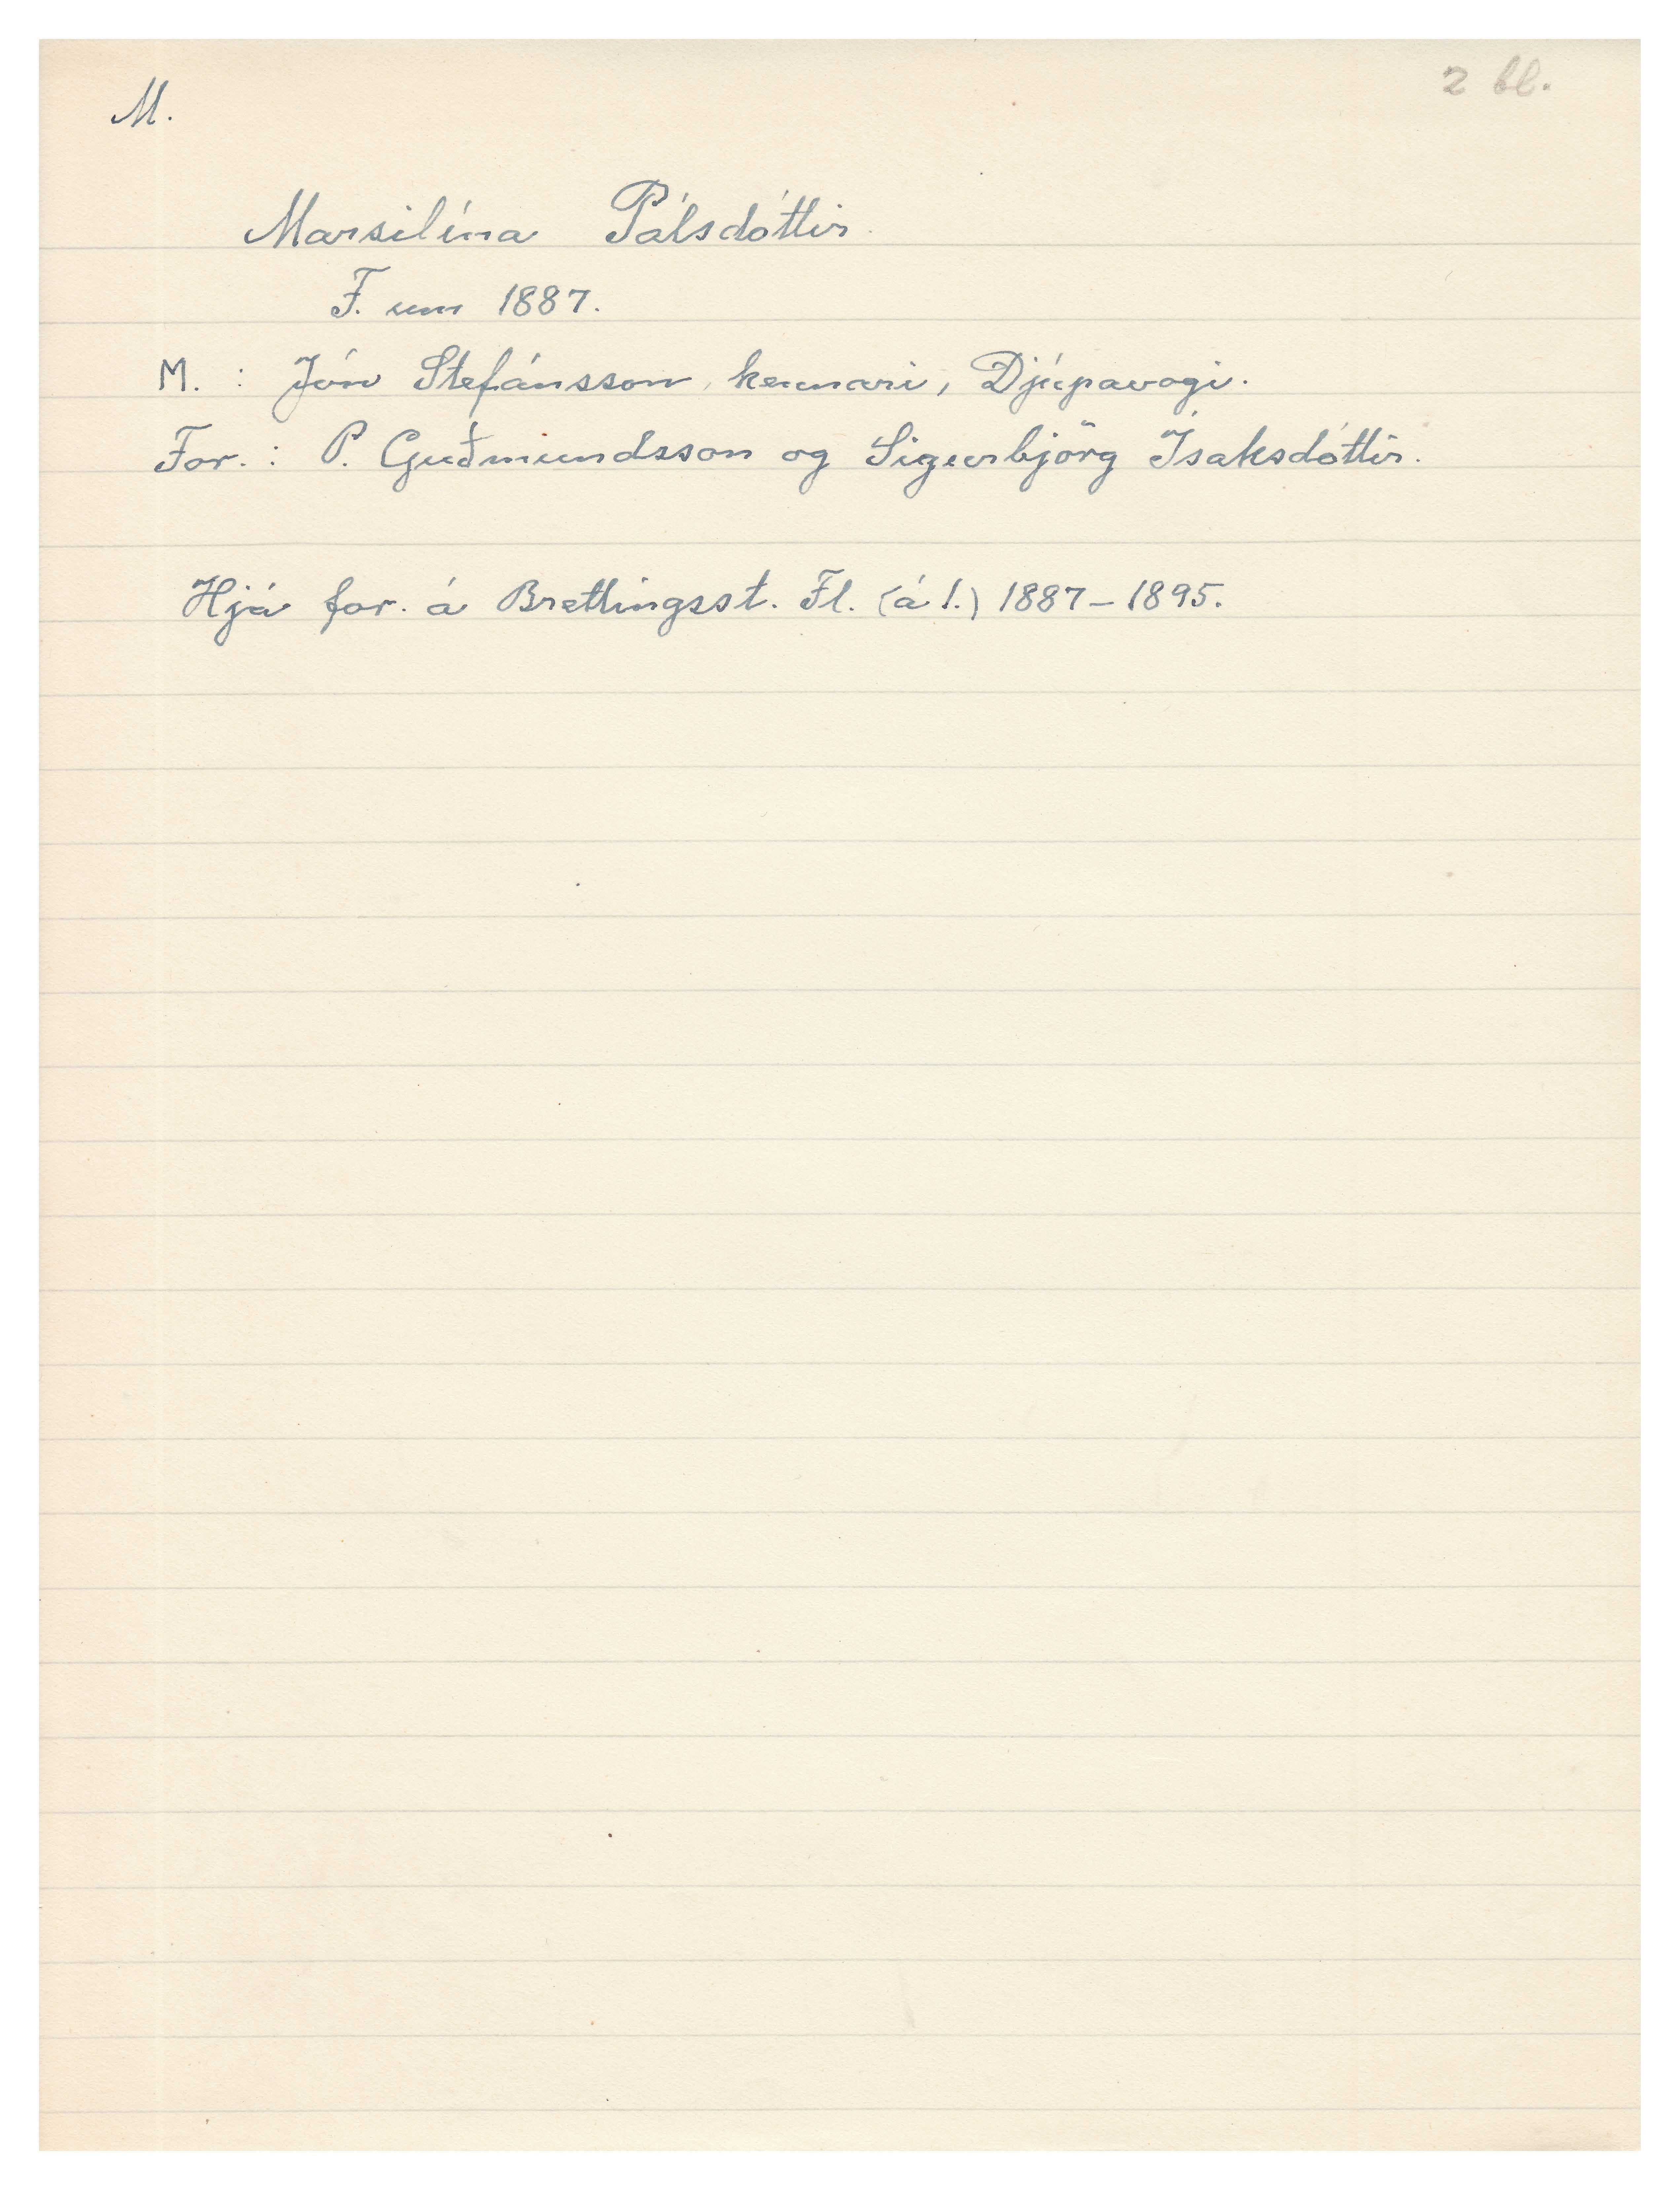 M.
2 bl.
Marsilína Pálsdóttir.
F. um 1887.
M. : Jón Stefánsson, kennari, Djúpavogi.
For. : P. Guðmundsson og Sigurbjörg Ísaksdóttir.
Hjá for. á Brettingsst. Fl. (á l.) 1887-1895.